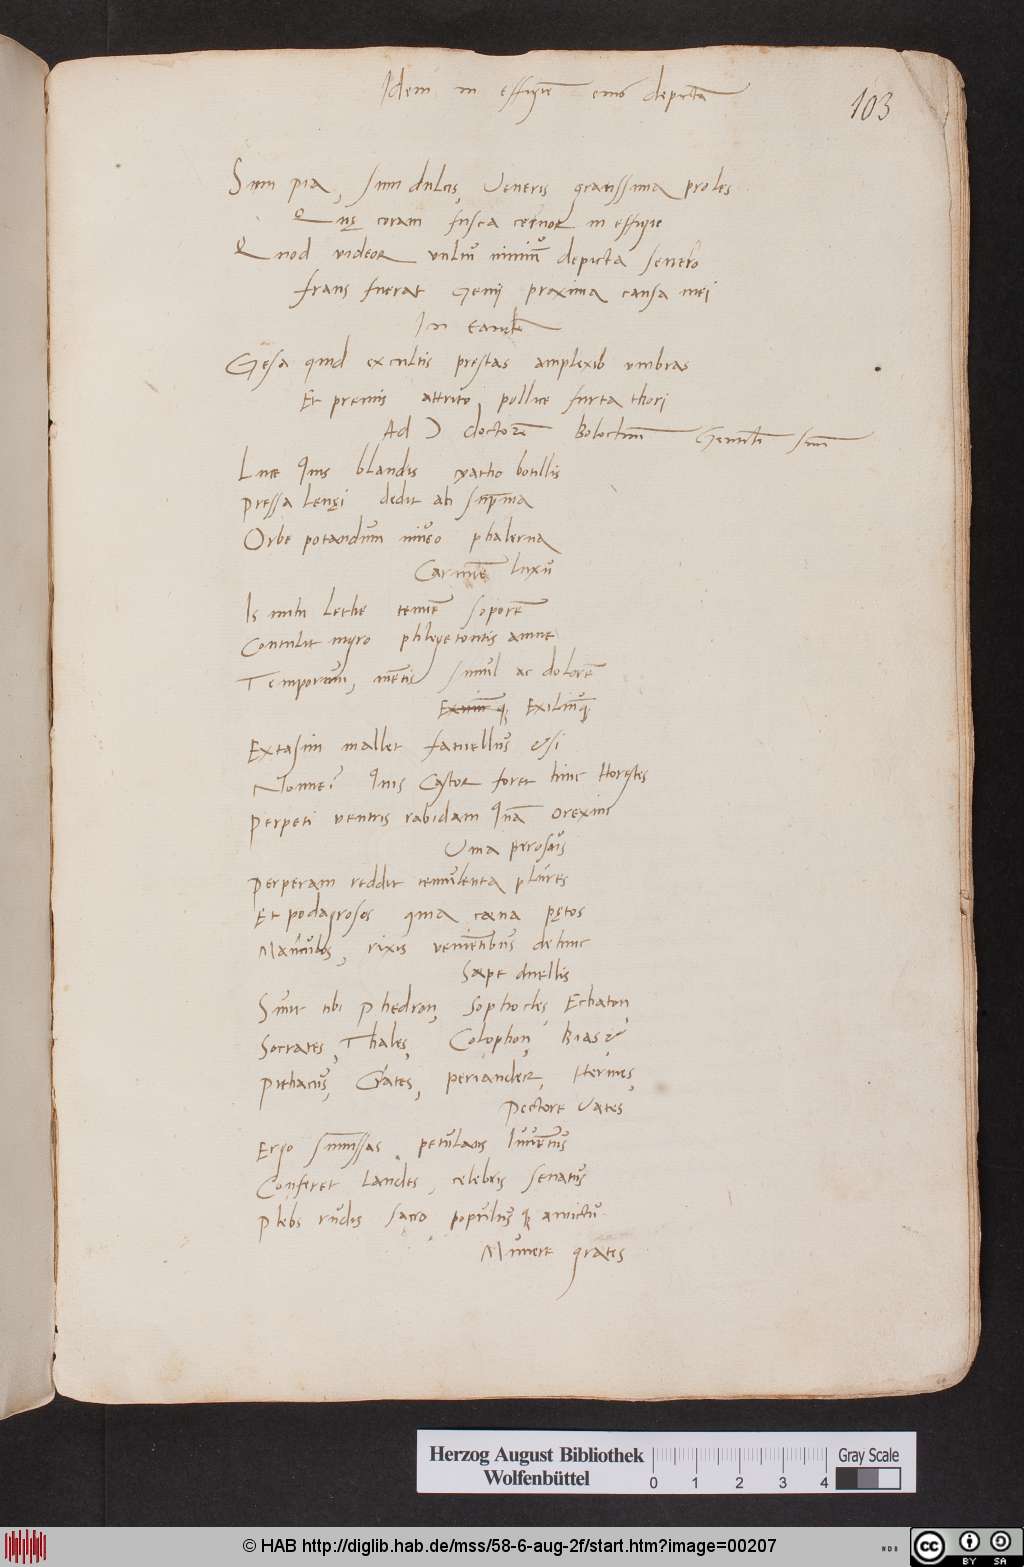 Idem in effigiē eius depictā
103
Sum pia, sum dulcis, Veneris gratissima proles
Quę coram fusca cernor in effigie
Quod videor vultū nimiū depicta seuero
fraus fuerat Genij proxima causa mei
In eandē
Gesa quid excultis prestas amplexib umbras
Et premis attrito pollice furta thori
Ad D doctorē
Luce quis blandis cyatho botillis
Pressa Lenęi dedit ah suprema
Orbe potandum niueo phalerna
Carmīe luxū
Is mihi Lethe tenuē soporē
Contulit nigro phlegetontis amne
Temporum, mētis simul ac dolorē
Exiliūq
Extasim mallet fatuellus & si
Nonne? quis Castor foret hinc Horestes
Perpeti ventris rabidam quā orexim
Vina perosus
Perperam reddit temulenta plures
Et podagrosos quia cæna pętos
rixis venientibus dehinc
Sæpe duellis
Sunt tibi Phedron, Sophocles, Echaton,
Socrates, Thales, Colophon, Bias &
Pithacus, Crates, periander, Hermes,
Pectore Vates
Ergo summissas petulans Iuuentus
Conferet laudes, celebris senatus
Plebs rudis sacro populusq amictu
Munere grates
Herzog August Bibliothek
Wolfenbüttel
0 1 2 3 4
Gray Scale
© HAB http://diglib.hab.de/mss/58-6-aug-2f/start.htm?image=00207
WDB
cc BY SA